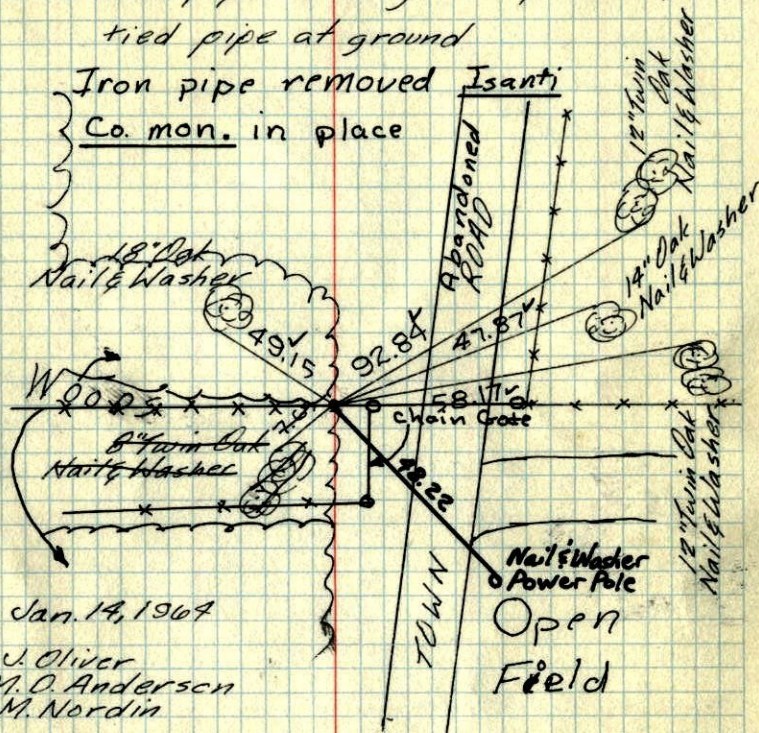 tied pipe at ground
Iron pipe removed
Isanti
Co. mon. in place
12" Twin
Oak
Nail & Washer
Abandoned
ROAD
18" Oak
Nail & Washer
14" Oak
Nail & Washer
49.15
92.84
47.87
W
58.17
Chain Gate
8" Twin Oak
Nail & Washer
48.22
12" Twin Oak
Nail & Washer
Nail & Washer
Power Pole
TOWN
Open
Field
Jan. 14, 1964
J. Oliver
M.O. Anderson
M. Nordin